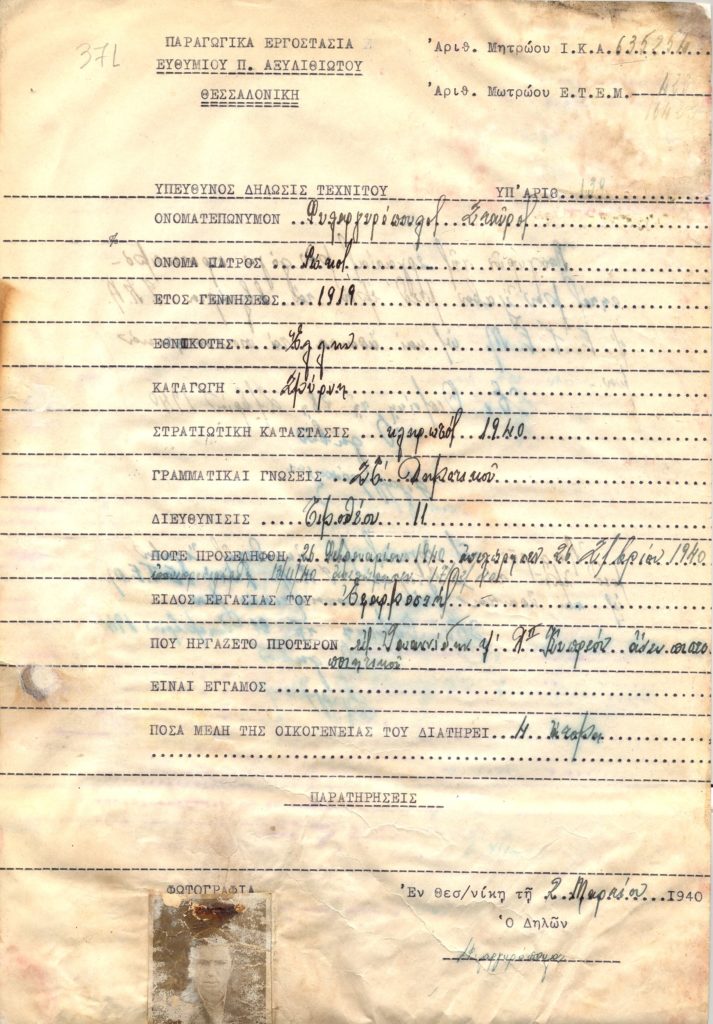 37
ΠΑΡΑΓΩΓΙΚΑ ΕΡΓΟΣΤΑΣΙΑ
ΕΥΘΥΜΙΟΥ Π. ΑΞΥΛΙΘΙΩΤΟΥ
ΘΕΣΣΑΛΟΝΙΚΗ
Ἀριθ. Μητρώου Ι.Κ.Α. 635256
Ἀριθ. Μωτρώου Ε.Τ.Ε.Μ.
ΥΠΕΥΘΥΝΟΣ ΔΗΛΩΣΙΣ ΤΕΧΝΙΤΟΥ ΥΠ'ΑΡΙΘ. 130
ΟΝΟΜΑΤΕΠΩΝΥΜΟΝ Σταῦρος
ΟΝΟΜΑ ΠΑΤΡΟΣ
ΕΤΟΣ ΓΕΝΝΗΣΕΩΣ 1919
ΕΘΝΙΚΟΤΗΣ Ἑλλην
ΚΑΤΑΓΩΓΗ Σμύρνη
ΣΤΡΑΤΙΩΤΙΚΗ ΚΑΤΑΣΤΑΣΙΣ κληρωτός 1940
ΓΡΑΜΜΑΤΙΚΑΙ ΓΝΩΣΕΙΣ ΣΤ' Δημοτικοῦ
ΔΙΕΥΘΥΝΙΣΙΣ Τιμοθέου 11
ΠΟΤΕ ΠΡΟΣΕΛΗΦΘΗ 26 Φεβρουαρίου 1940 ἀπεχώρησεν 26 Σ/βρίου 1940
ΕΙΔΟΣ ΕΡΓΑΣΙΑΣ ΤΟΥ Ἐφαρμοστής
ΠΟΥ ΗΡΓΑΖΕΤΟ ΠΡΟΤΕΡΟΝ ἄνευ πιστο
ποιητικοῦ
ΕΙΝΑΙ ΕΓΓΑΜΟΣ
ΠΟΣΑ ΜΕΛΗ ΤΗΣ ΟΙΚΟΓΕΝΕΙΑΣ ΤΟΥ ΔΙΑΤΗΡΕΙ 4 ἄτομα
ΠΑΡΑΤΗΡΗΣΕΙΣ
ΦΩΤΟΓΡΑΦΙΑ
Ἐν Θεσ/νίκῃ τῇ 2 Μαρτίου 1940
Ὁ Δηλῶν